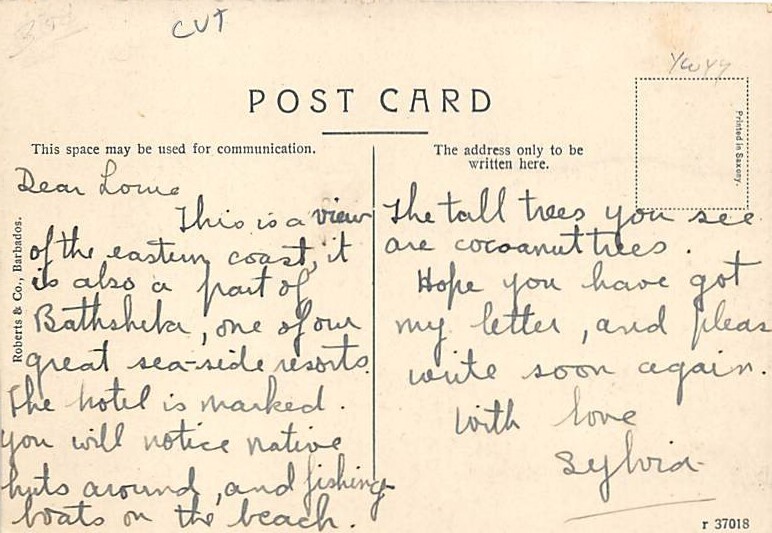 CUT
POST CARD
This space may be used for communication.
The address only to be
written here.
Printed in Saxony.
Roberts & Co., Barbados.
Dear Lorne
This is a view
of the eastern coast, it
is also a part of
Bathsheba, one of our
great sea-side resorts.
The hotel is marked.
You will notice native
huts around, and fishing
boats on the beach.
The tall trees you see
are cocoanut trees.
Hope you have got
my letter, and pleas
write soon again.
With love
Sylvia
r 37018